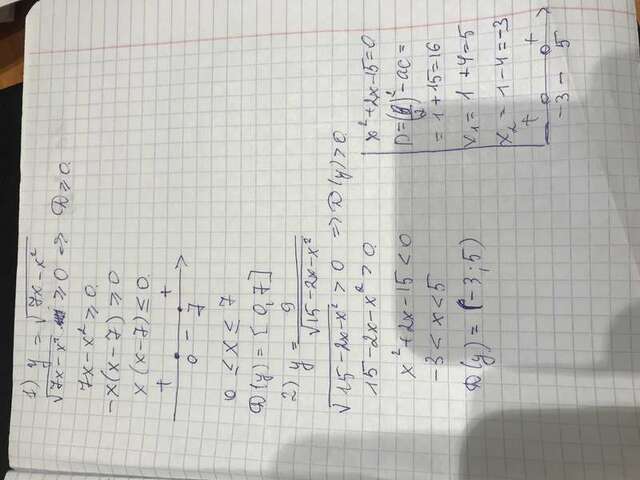 1) y = √7x-x²
√7x-x² ≥ 0 ⇒ D ≥ 0.
7x-x² ≥ 0.
-x(x-7) ≥ 0
x (x-7) ≤ 0.
+ +
0 - 7
0 ≤ x ≤ 7
D(y) = [0,7]
2) y = 9/√15-2x-x²
√15-2x-x² > 0 ⇒ D(y)>0.
15-2x-x² > 0.
x²+2x-15 < 0
-3 < x < 5
D(y) = (-3;5)
x²+2x-15=0
D=(b/2)²-ac=
=1+15=16
x₁= 1+4=5
x₂= 1-4=-3
+ +
-3 - 5